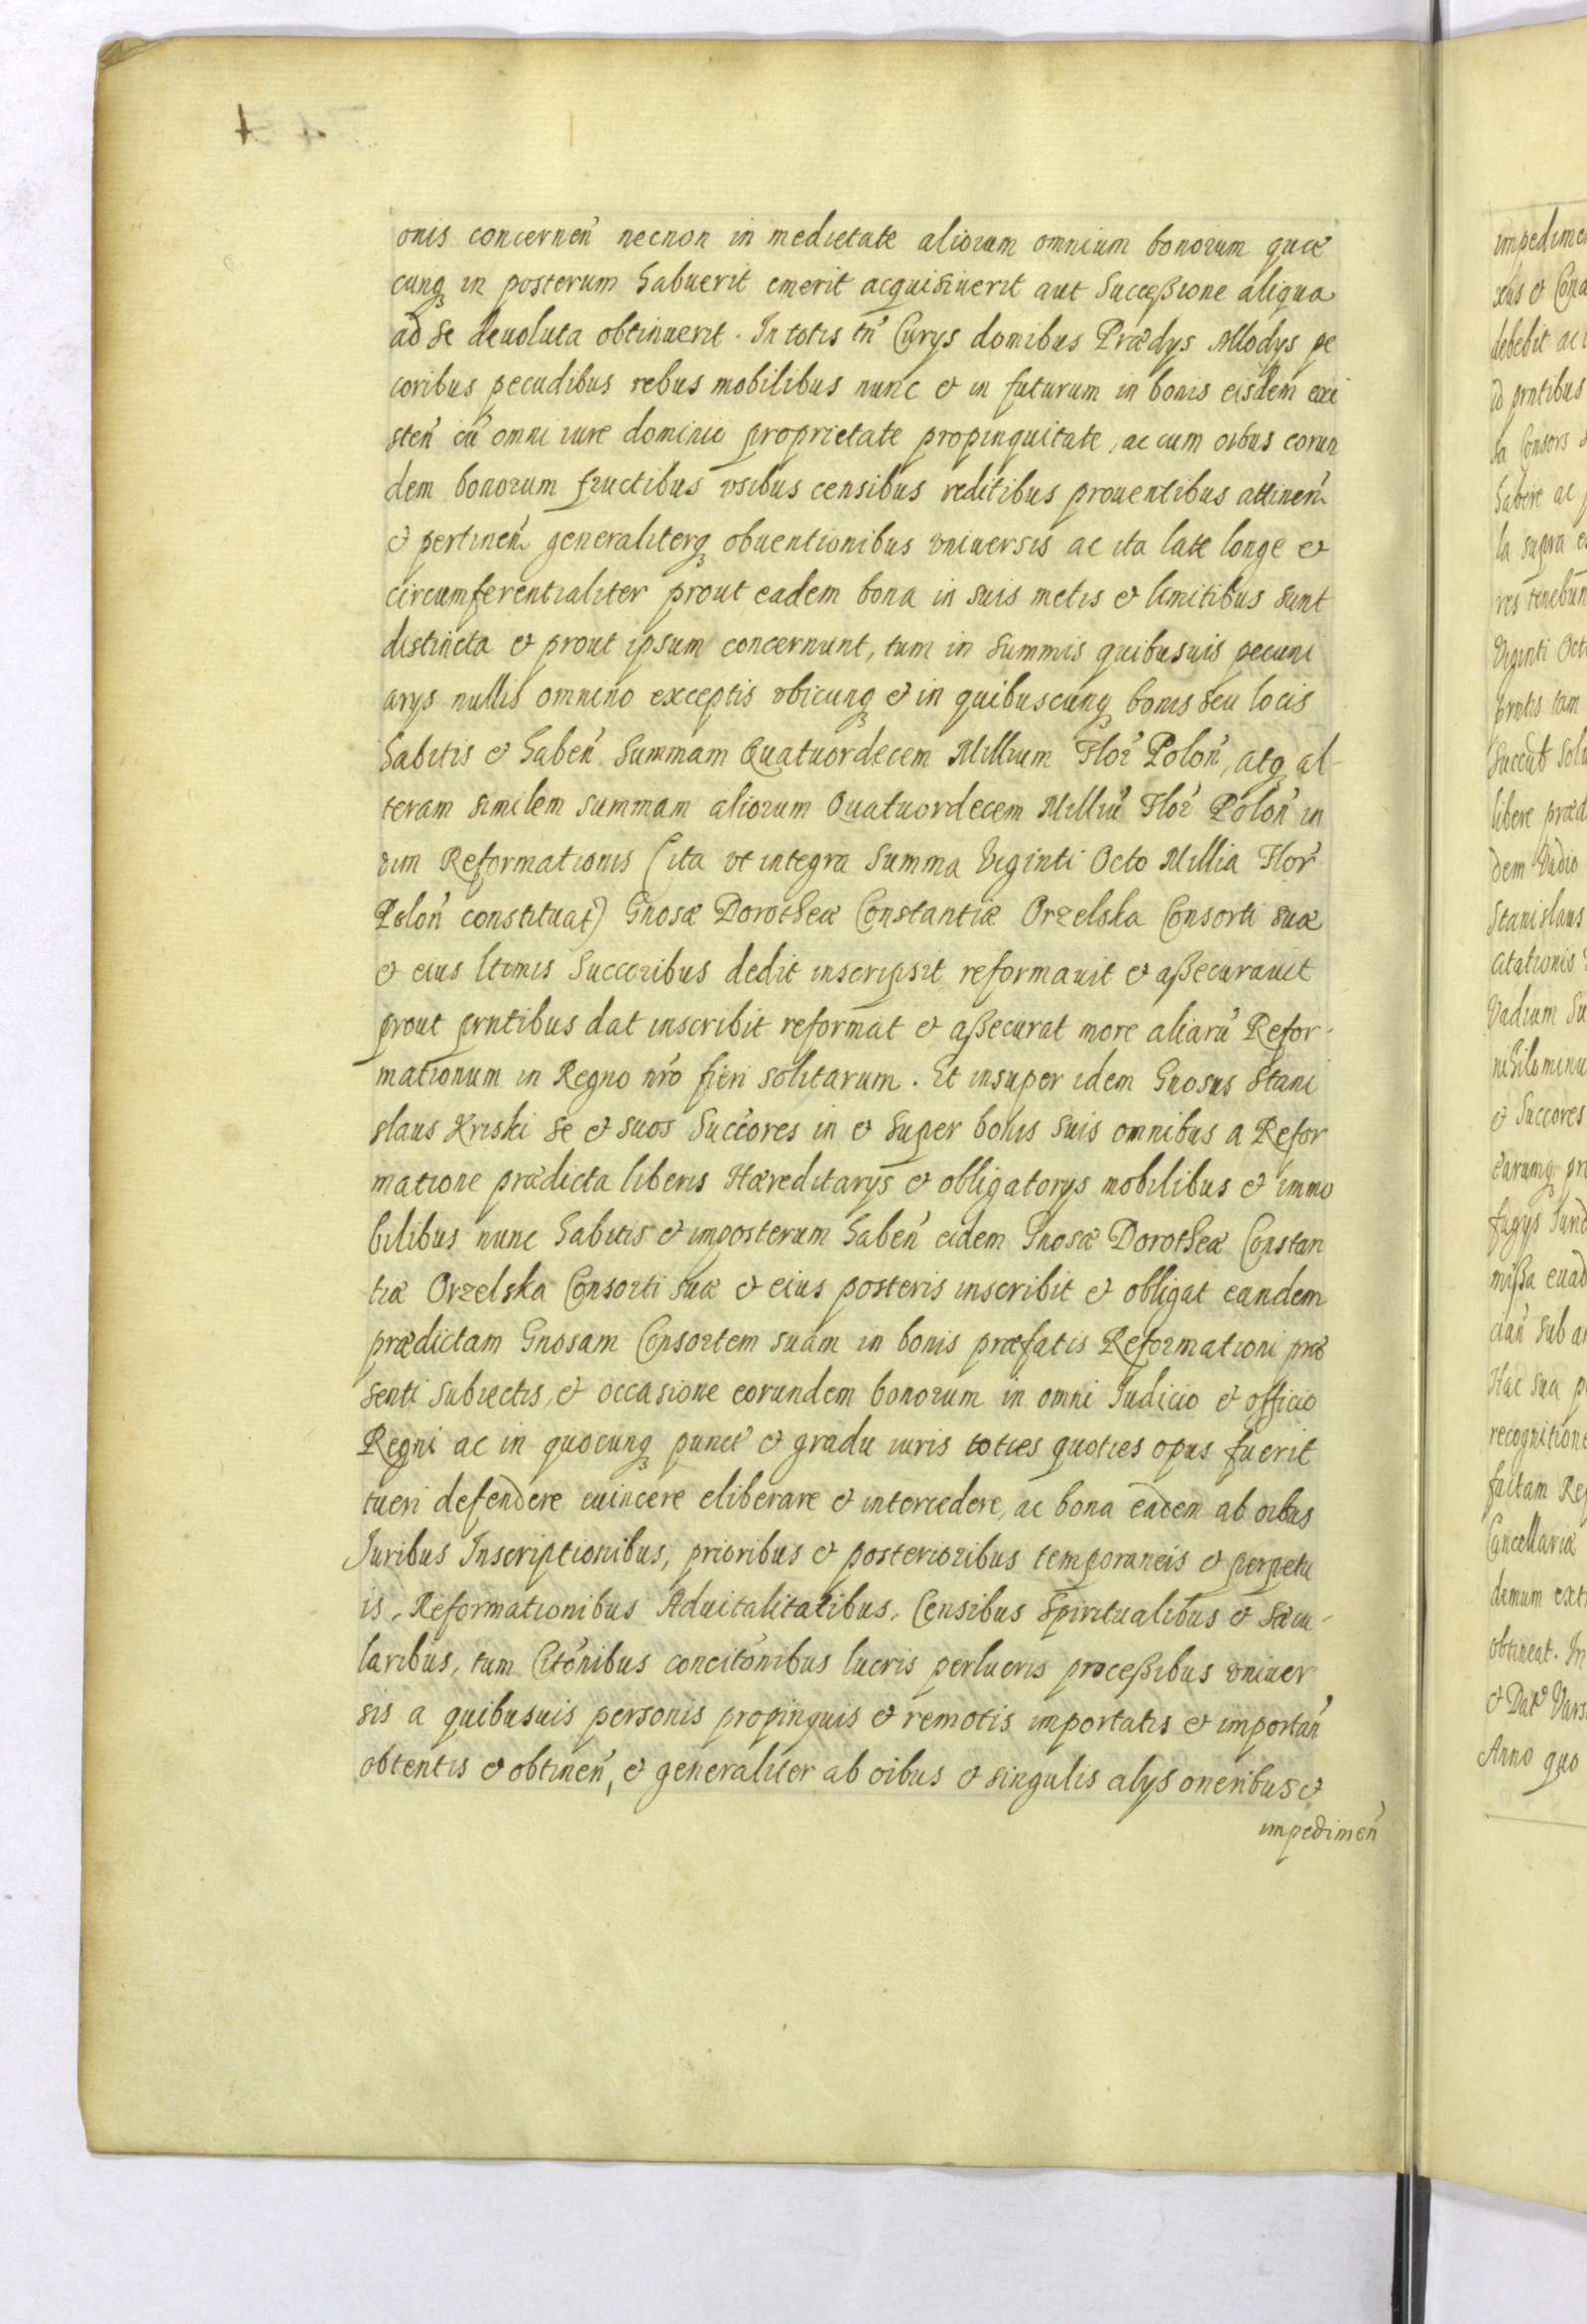 onis concerneń necnon in medietate aliorum omnium bonorum quæ
cunq in posterum habuerit emerit acquisiuerit aut Succeßione aliqua
ad Se deuoluta obtinuerit. In totis tń Curys domibus Prædys Allodys pe
coribus pecudibus rebus mobilibus nunc et in futurum in bonis eisdem exi
steń cū omni iure dominio proprietate propinquitate, ac cum oibus eorun
dem bonorum fructibus vsibus censibus reditibus prouentibus attineń
et pertineń generaliterq obuentionibus vniuersis ac ita late longe et
circumferentialiter prout eadem bona in suis metis et limitibus sunt
distincta et prout ipsum concernunt, tum in Summis quibusuis pecuni
arys nullis omnino exceptis vbicunq et in quibuscunq bonis seu locis
habitis et habeń Summam Quatuordecem Millium Flor Poloń, atq al-
teram similem summam aliorum Quatuordecem Milliū Flor Poloń in
vim Reformationis (ita vt integra Summa Viginti Octo Millia Flor
Poloń constituat) Gnosæ Dorotheæ Constantiæ Orzelska Consorti suæ
et eius ltimis Succoribus dedit inscripsit reformauit et aßecurauit
prout prntibus dat inscribit reformat et aßecurat more aliarū Refor-
mationum in Regno nro fieri solitarum. Et insuper idem Gnosus Stani
slaus Kriski se et suos Succores in et Super bonis suis omnibus a Refor
matione prædicta liberis Hæreditarys et obligatorys mobilibus et immo
bilibus nunc habitis et imposterum habeń eidem Gnosæ Dorotheæ Constan
tiæ Orzelska Consorti suæ et eius posteris inscribit et obligat eandem
prædictam Gnosam Consortem suam in bonis præfatis Reformationi præ
senti subiectis, et occasione eorundem bonorum in omni Iudicio et officio
Regni ac in quocunq punct' et gradu iuris toties quoties opus fuerit
tueri defendere euincere eliberare et intercedere, ac bona eadem ab oibus
Iuribus Inscriptionibus, prioribus et posterioribus temporaneis et perpetu
is, Reformationibus Aduitalitatibus, Censibus Spiritualibus et Sæcu-
laribus, tum Citońibus concitońibus lucris perlucris proceßibus vniuer
sis a quibusuis personis propinquis et remotis importatis et importań
obtentis et obtineń, et generaliter ab oibus et singulis alys oneribus et
impedimeń